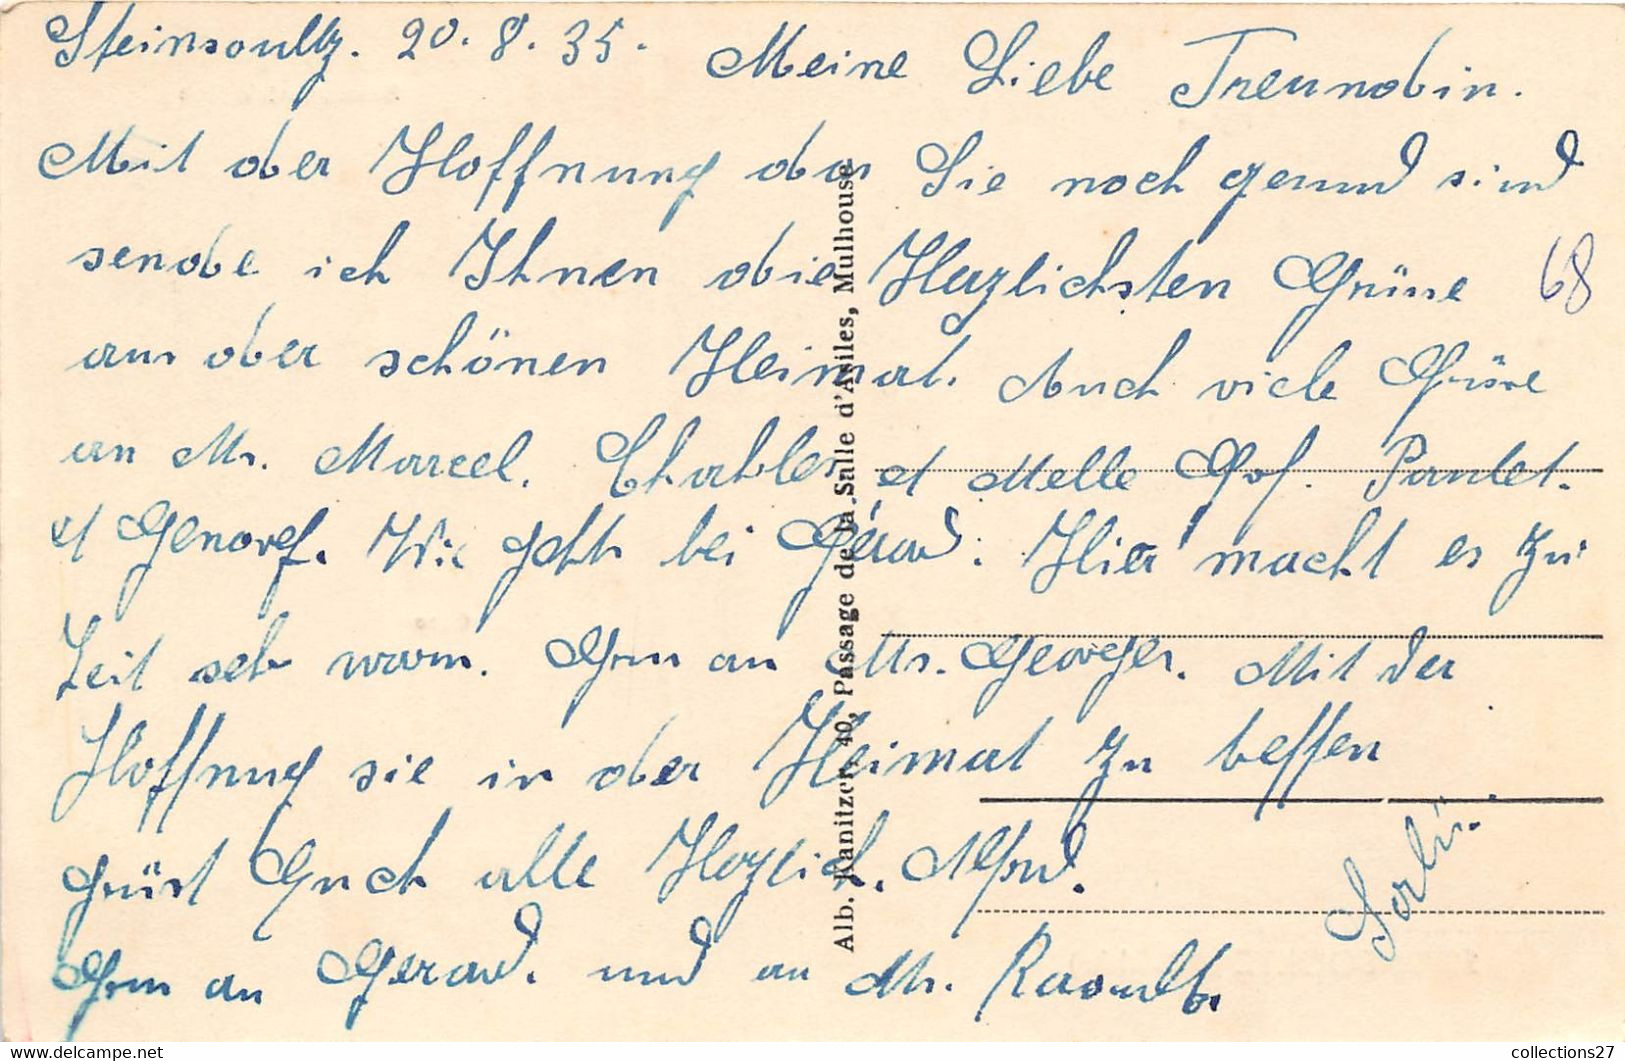 Steinsoultz. 20.8.35. Meine Liebe Freundin.
Mit der Hoffnung das Sie noch gesund sind
sende ich Ihnen die Herzlichsten Grüsse
aus der schönen Heimat. Auch viele Grüsse
an Mr. Marcel. Charles et Melle Paulet.
et Genovef. Wie geht bei Gérard. Hier macht es zu
Zeit seh warm. Grus an Mr. Georges. Mit der
Hoffnug sie in der Heimat zu treffen
grüst Euch alle Herzlich. Alfred.
Grus an Gerard. und an Mr. Raoult.
68
Alb. Kanitzer, 40, Passage de la Salle d'Asiles, Mulhouse
collections27